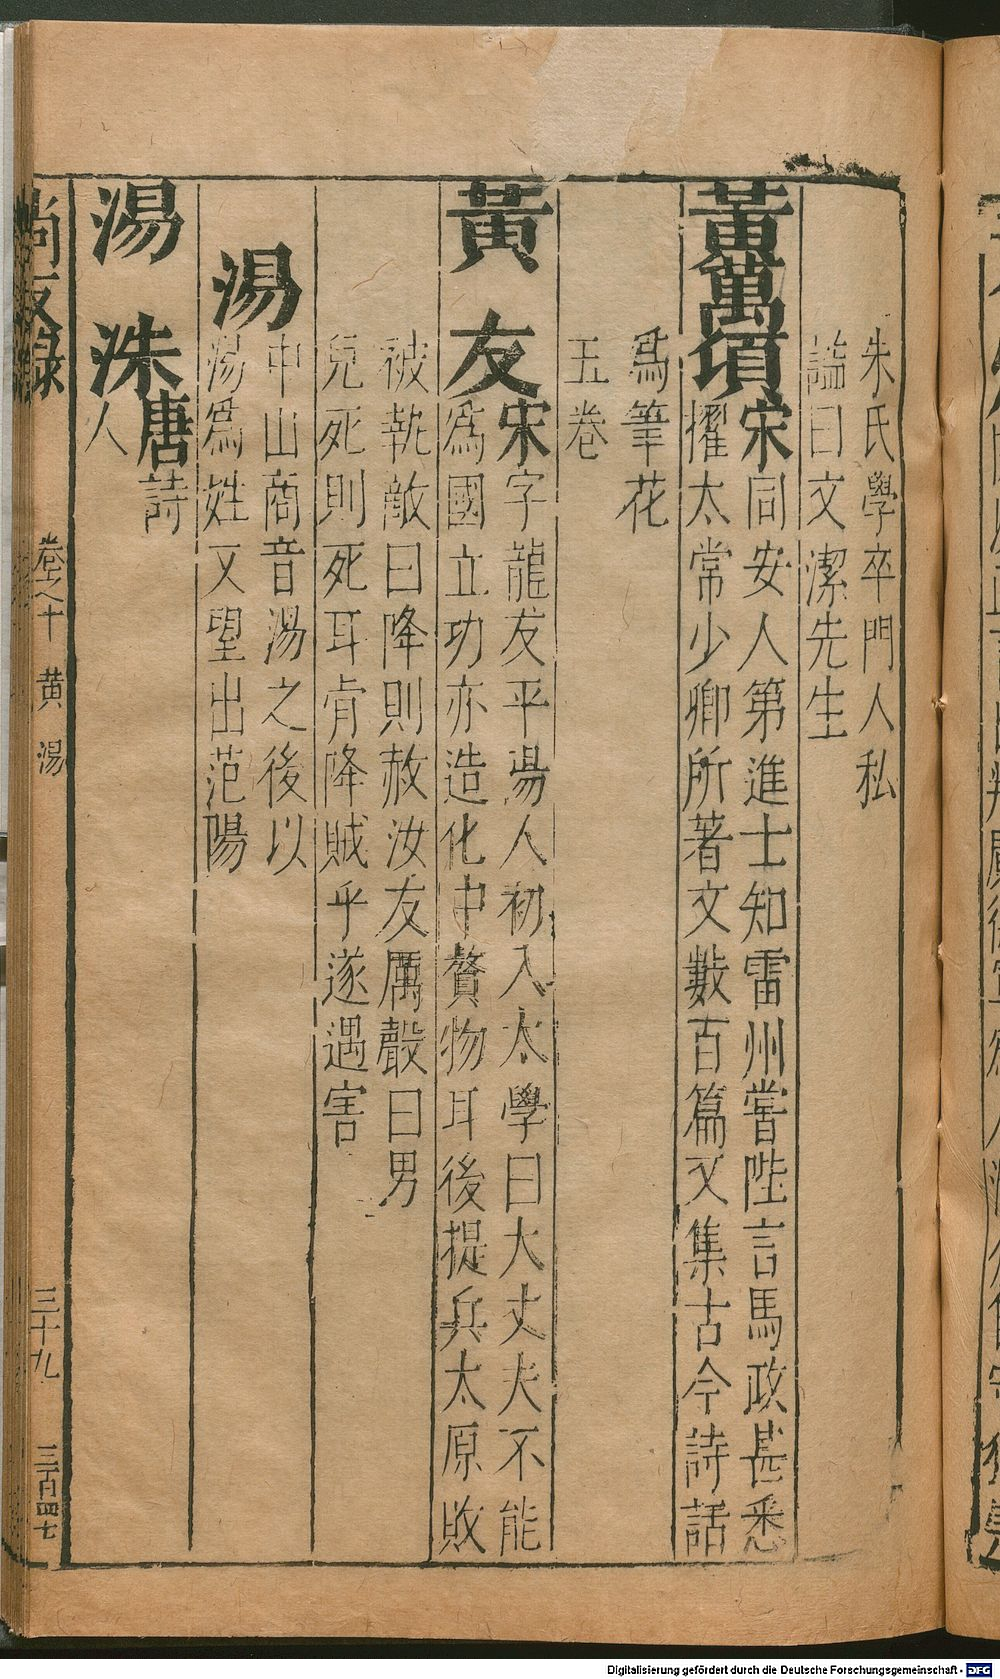 朱氏學卒門人私
謚曰文潔先生
黃萬頃宋同安人第進士知雷州嘗陛言馬政甚悉
擢太常少卿所著文數百篇又集古今詩話
爲筆花
五卷
黃友宋字龍友平湯人初入太學曰大丈夫不能
爲國立功亦造化中贅物耳後提兵太原敗
被執敵曰降則赦汝友厲聲曰男
兒死則死耳肯降賊乎遂遇害
湯
中山商音湯之後以
湯爲姓又望出范陽
湯洙唐詩
人
尚友錄 卷之十 黃 湯 三十九 三百四七
Digitalisierung gefördert durch die Deutsche Forschungsgemeinschaft - DFG